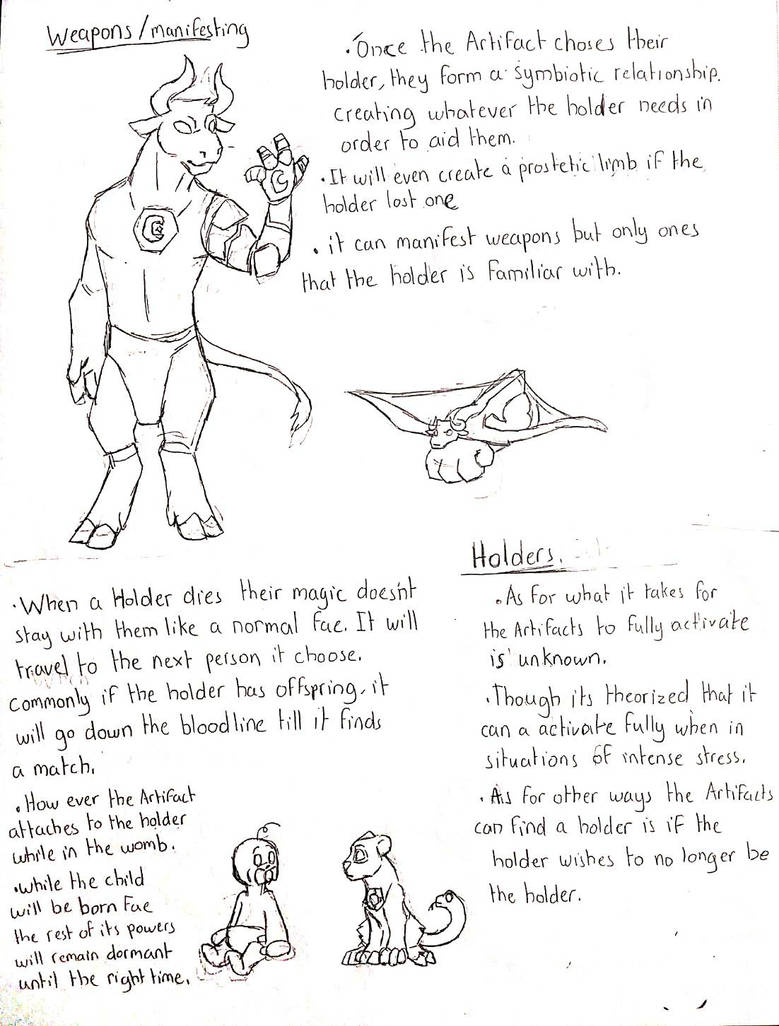 Weapons/manifesting
. Once the Artifact choses their
holder, they form a symbiotic relationship.
creating whatever the holder needs in
order to aid them.
. It will even create a prostetic limb if the
holder lost one
. it can manifest weapons but only ones
that the holder is familiar with.
. When a Holder dies their magic does'nt
stay with them like a normal fae. It will
travel to the next person it choose.
commonly if the holder has offspring, it
will go down the bloodline till it finds
a match.
. How ever the Artifact
attaches to the holder
while in the womb.
. while the child
will be born Fae
the rest of its powers
will remain dormant
until the right time.
Holders.
. As for what it takes for
the Artifacts to fully activate
is unknown.
. Though its theorized that it
can a activate fully when in
situations of intense stress.
. As for other ways the Artifacts
can find a holder is if the
holder wishes to no longer be
the holder.